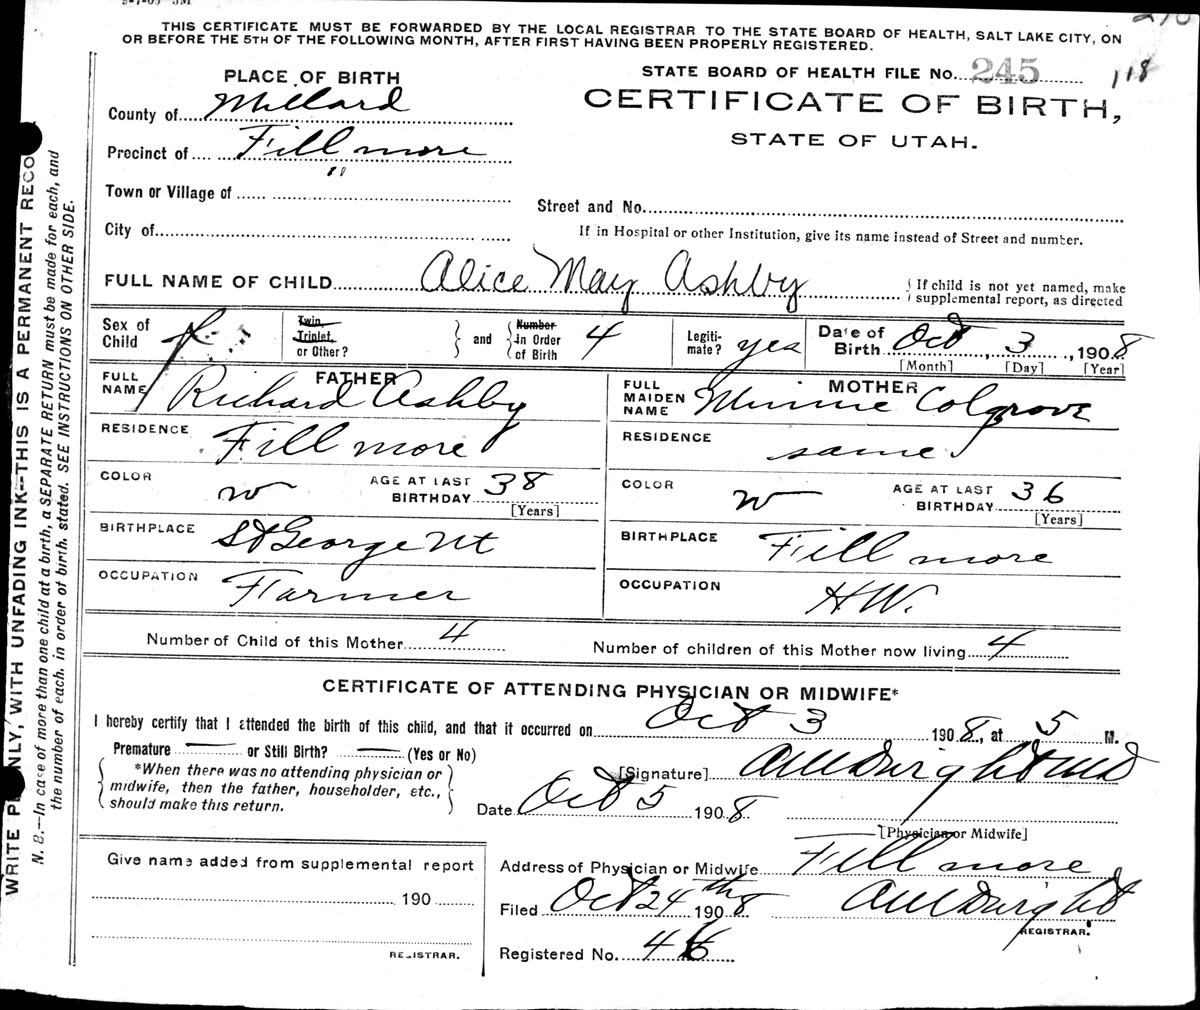 THIS CERTIFICATE MUST BE FORWARDED BY THE LOCAL REGISTRAR TO THE STATE BOARD OF HEALTH, SALT LAKE CITY, ON
OR BEFORE THE 5TH OF THE FOLLOWING MONTH, AFTER FIRST HAVING BEEN PROPERLY REGISTERED.
PLACE OF BIRTH
STATE BOARD OF HEALTH FILE No. 245 118
County of Millard
CERTIFICATE OF BIRTH,
Precinct of Fillmore
STATE OF UTAH.
Town or Village of "
Street and No.
City of
If in Hospital or other Institution, give its name instead of Street and number.
FULL NAME OF CHILD Alice May Ashby
If child is not yet named, make
supplemental report, as directed
Sex of Child f
Twin, Triplet, or Other? and Number in Order of Birth 4
Legitimate? yes
Date of Birth Oct 3, 1908
[Month] [Day] [Year]
FATHER
FULL NAME Richard Ashby
MOTHER
FULL MAIDEN NAME Minnie Colgrove
RESIDENCE Fillmore
RESIDENCE same
COLOR w AGE AT LAST BIRTHDAY 38 [Years]
COLOR w AGE AT LAST BIRTHDAY 36 [Years]
BIRTHPLACE St George Ut
BIRTHPLACE Fillmore
OCCUPATION Farmer
OCCUPATION H.W.
Number of Child of this Mother 4
Number of children of this Mother now living 4
CERTIFICATE OF ATTENDING PHYSICIAN OR MIDWIFE*
I hereby certify that I attended the birth of this child, and that it occurred on Oct 3 1908, at 5 M.
Premature — or Still Birth? — (Yes or No)
*When there was no attending physician or
midwife, then the father, householder, etc.,
should make this return.
[Signature]
Date Oct 5 1908
[Physician or Midwife]
Give name added from supplemental report
190
REGISTRAR.
Address of Physician or Midwife Fillmore
Filed Oct 24th 1908
REGISTRAR.
Registered No. 46
WRITE PLAINLY, WITH UNFADING INK—THIS IS A PERMANENT RECO
N. B.—In case of more than one child at a birth, a SEPARATE RETURN must be made for each, and
the number of each, in order of birth, stated. SEE INSTRUCTIONS ON OTHER SIDE.